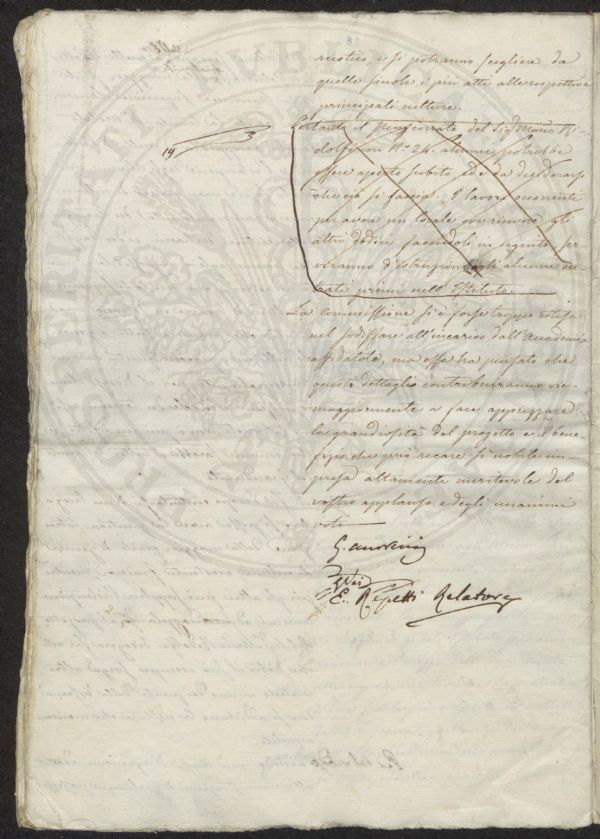 rustico, e si potranno scegliere da
quelle scuole i più atti alle respettive
principali culture.
Pertanto il pensionato del Sig. March. Ri-
dolfi per N.o 24 alunni potrebbe
essere aperto subito, ed è da desiderarsi
che ciò si faccia. I lavori occorrenti
per avere un locale ove ricevere gli
altri dodici facendoli in seguito ser-
viranno d'istruzione agli alunni en-
trati primi nell'Istituto.
La commissione si è forse troppo estesa
nel sodisfare all'incarico dall'Accademia
affidatole, ma essa ha pensato che
questi dettaglj contribuiranno vie-
maggiormente a fare apprezzare
la grandiosità del progetto e il bene-
fizio che può recare sì nobile im-
presa altamente meritevole del
vostro applauso e degli unanimi
voti
E. Repetti Relatore
19 3